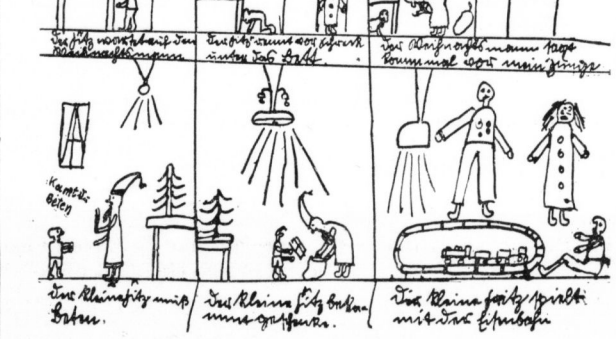 Der Fritz wartet auf den
Weihnachtsmann
Der Fritz rennt vor Schreck
unter das Bett.
Der Weihnachtsmann sagt
komm mal vor mein Junge
Kannst du
Beten
Der kleine Fritz muß
Beten.
Der kleine Fritz beko-
mmt geschenke.
Der kleine Fritz spielt
mit der Eisenbahn